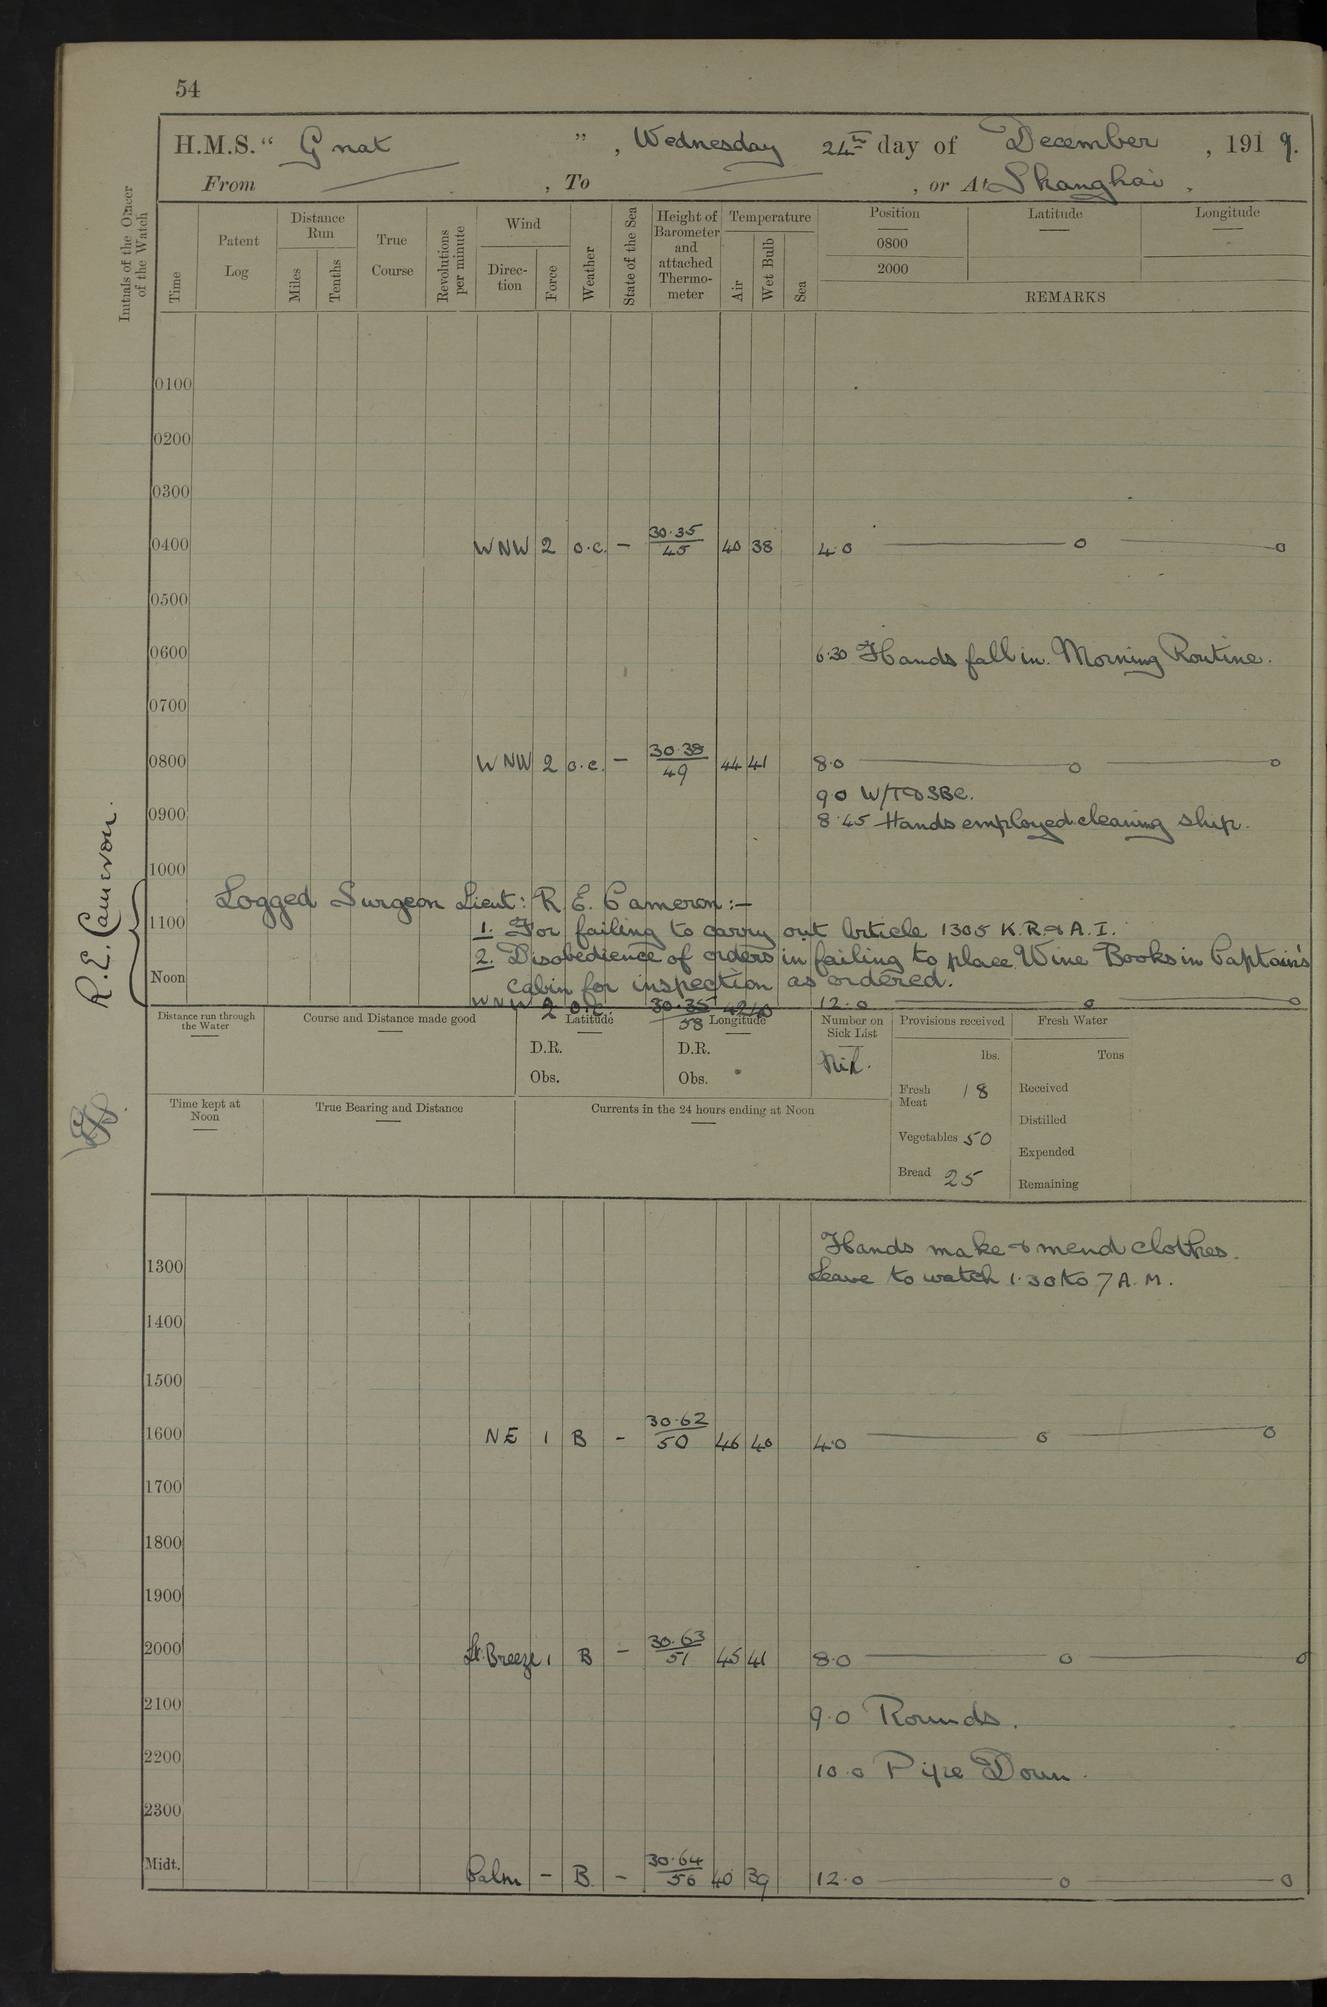 54
H.M.S. “ Gnat ”, Wednesday 24th day of December, 1919.
From —, To —, or At Shanghai.
Initials of the Officer of the Watch
Time
Patent Log
Distance Run
Miles
Tenths
True Course
Revolutions per minute
Wind
Direction
Force
Weather
State of the Sea
Height of Barometer and attached Thermometer
Temperature
Air
Wet Bulb
Sea
Position
0800
2000
Latitude
Longitude
REMARKS
0100
0200
0300
0400 WNW 2 o.c. — 30.35/45 40 38 4.0 —— o —— o
0500
0600 6.30 Hands fall in. Morning Routine.
0700
0800 WNW 2 o.c. — 30.38/49 44 41 8.0 —— o —— o
9.0 W/T
0900 8.45 Hands employed cleaning ship.
1000
Logged Surgeon Lieut: R. E. Cameron:—
1100 1. For failing to carry out Article 1305 K.R. & A.I.
2. Disobedience of orders in failing to place Wine Books in Captain's
Noon cabin for inspection as ordered.
R.E. Cameron.
WNW 2 o.c. 30.35/58 42 40 12.0 —— o —— o
Distance run through the Water
Course and Distance made good
Latitude
D.R.
Obs.
Longitude
D.R.
Obs.
Number on Sick List
Nil.
Provisions received
lbs.
Fresh Meat 18
Vegetables 50
Bread 25
Fresh Water
Tons
Received
Distilled
Expended
Remaining
Time kept at Noon
True Bearing and Distance
Currents in the 24 hours ending at Noon
Hands make & mend clothes.
1300 Leave to watch 1.30 to 7 A.M.
1400
1500
1600 NE 1 B - 30.62/50 46 40 4.0 —— o —— o
1700
1800
1900
2000 Lt. Breeze 1 B — 30.63/51 45 41 8.0 —— o —— o
2100 9.0 Rounds.
2200 10.0 Pipe Down.
2300
Midt. Calm — B — 30.64/56 40 39 12.0 —— o —— o